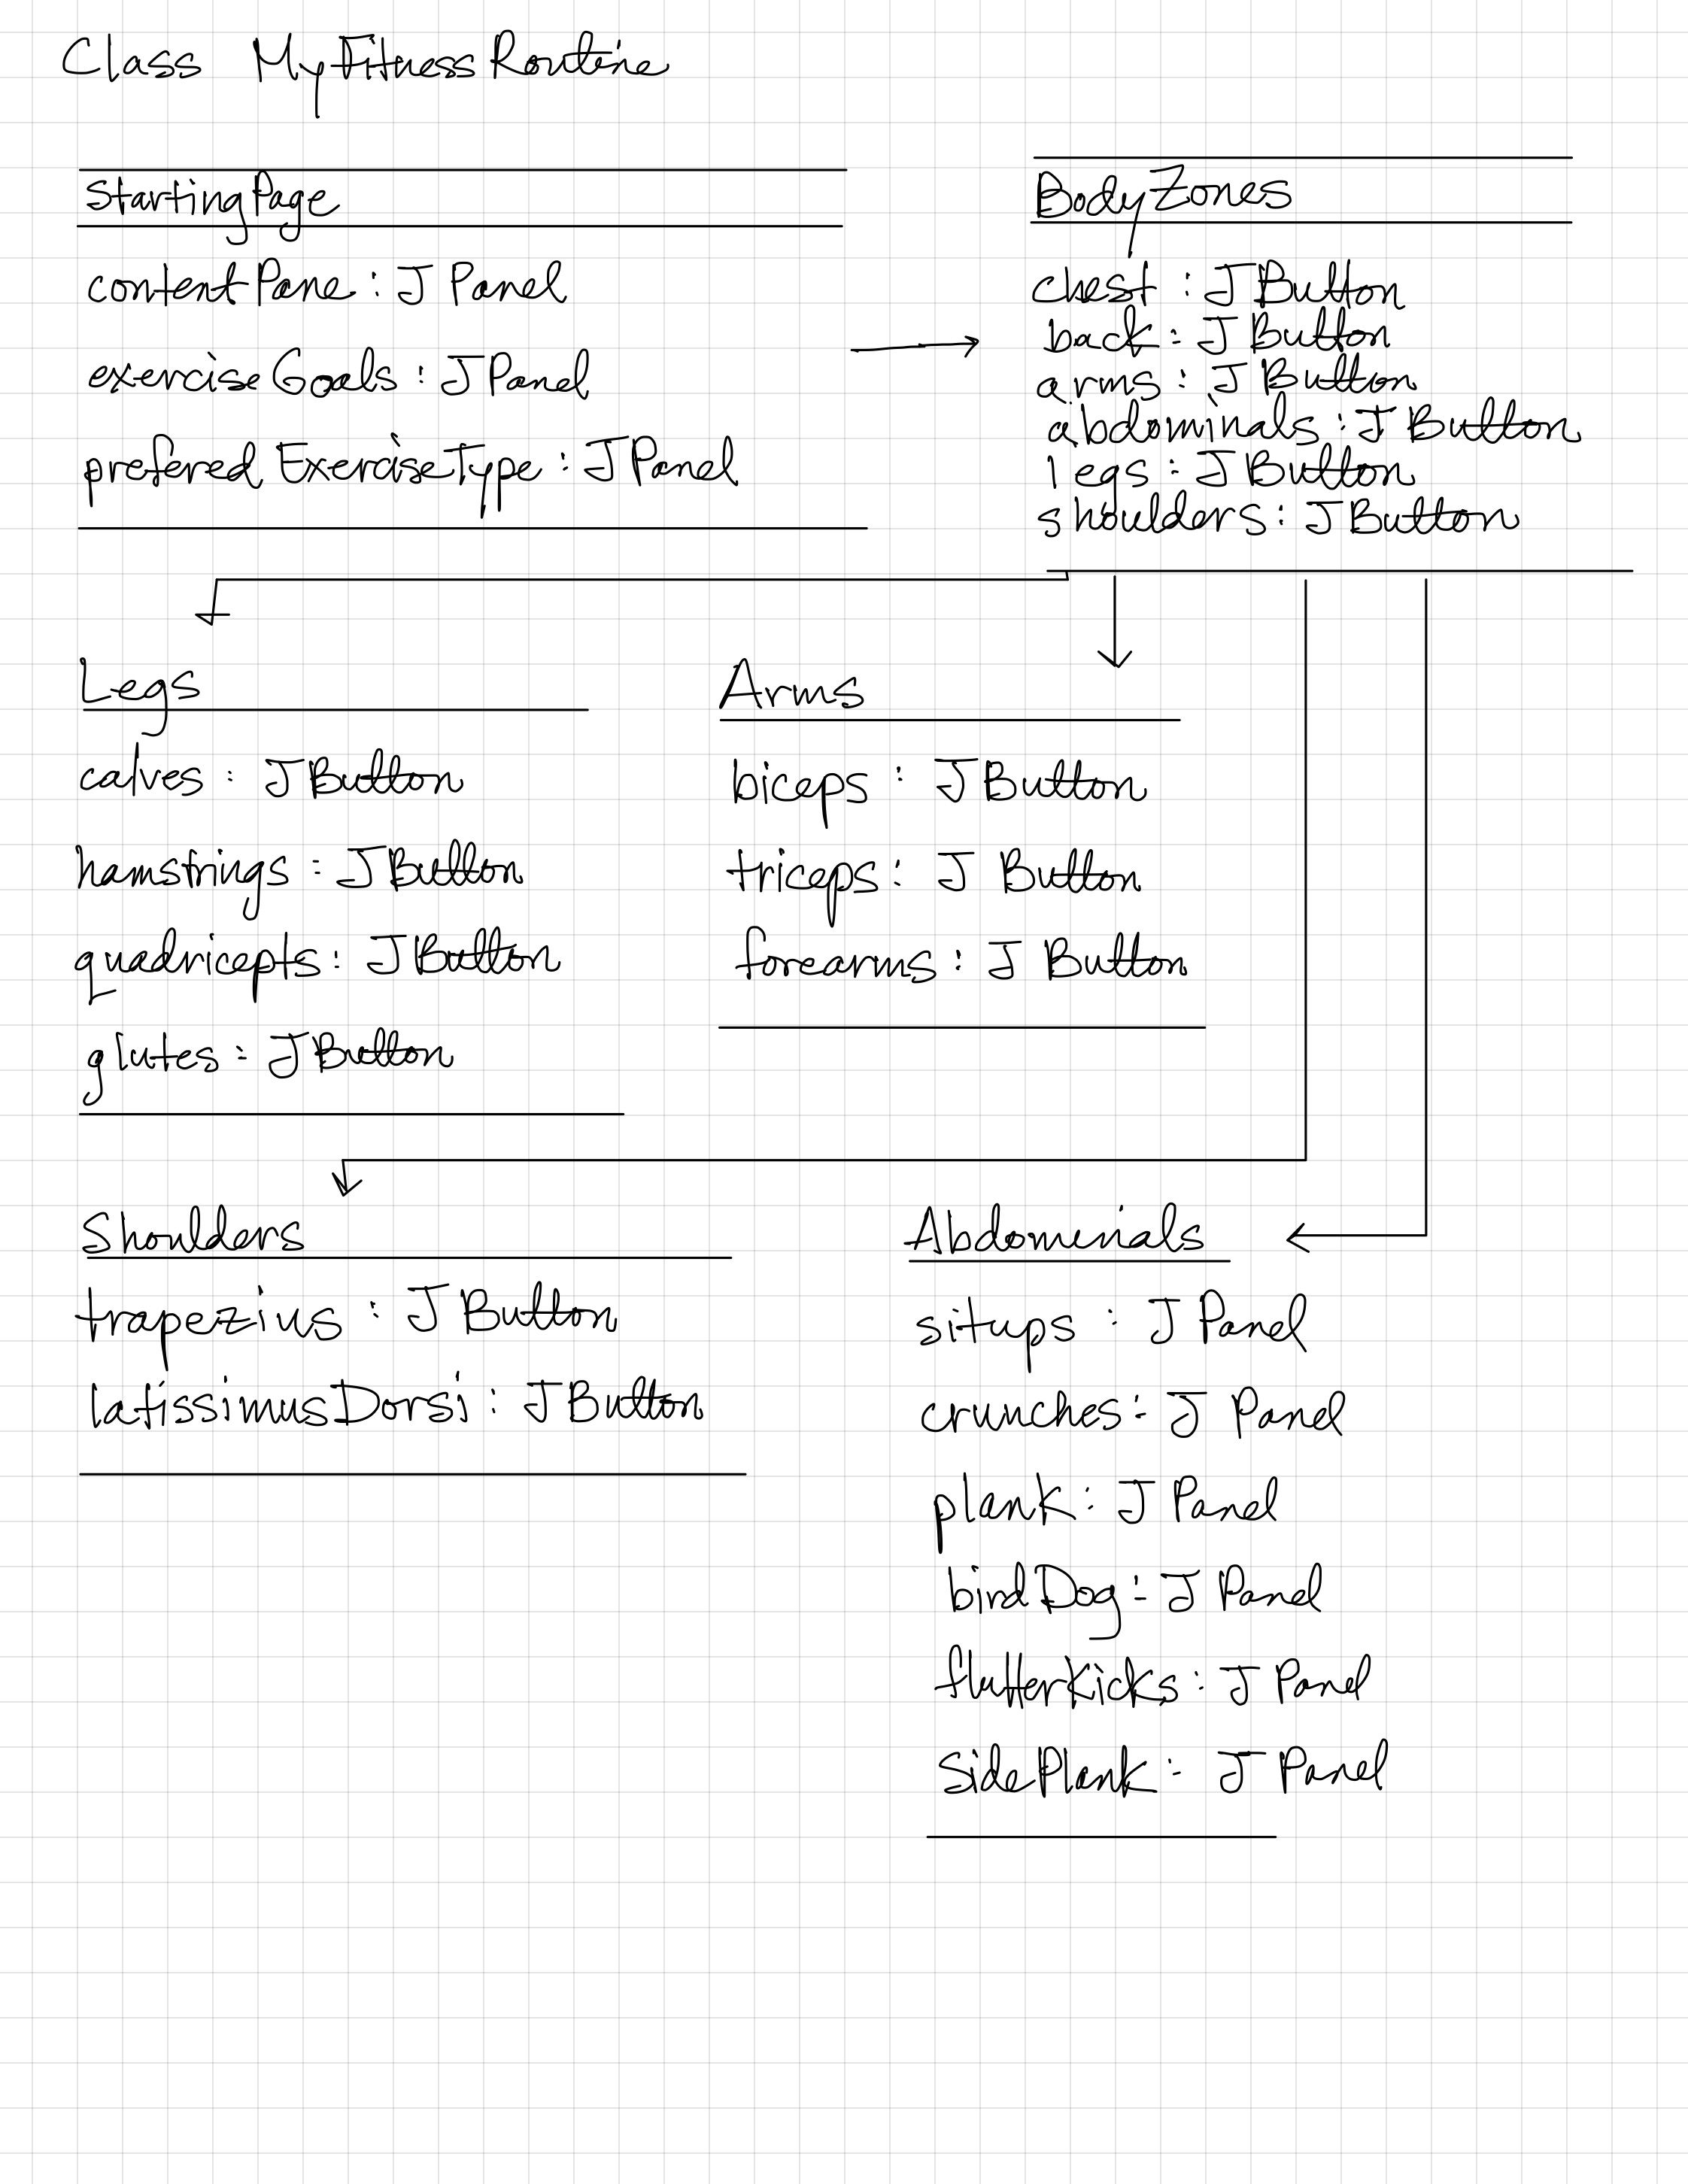 Class MyFitnessRoutine
StartingPage
contentPane : JPanel
exerciseGoals : JPanel
prefered ExerciseType : JPanel
BodyZones
chest : JButton
back : JButton
arms : JButton
abdominals : JButton
legs : JButton
shoulders : JButton
Legs
calves : JButton
hamstrings : JButton
quadricepts : JButton
glutes : JButton
Arms
biceps : JButton
triceps : JButton
forearms : JButton
Shoulders
trapezius : JButton
latissimusDorsi : JButton
Abdomenials
situps : JPanel
crunches : JPanel
plank : JPanel
birdDog : JPanel
flutterKicks : JPanel
SidePlank : JPanel